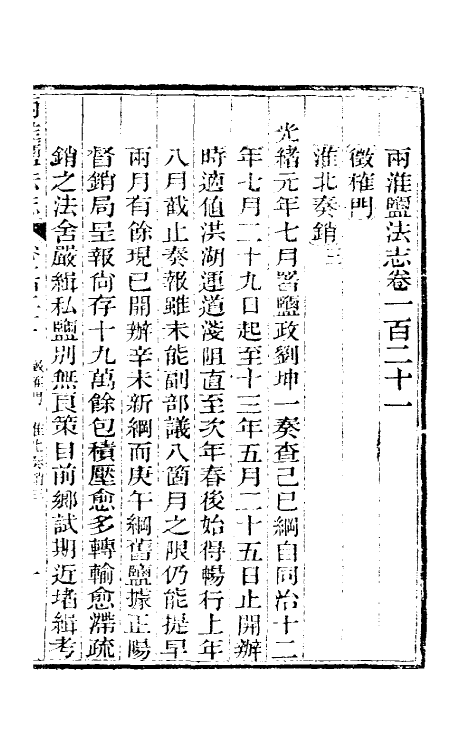 兩淮鹽法志卷一百二十一
徵榷門
淮北奏銷三
光緒元年七月署鹽政劉坤一奏查己巳綱自同治十二
年七月二十九日起至十三年五月二十五日止開辦
時適值洪湖運道淺阻直至次年春後始得暢行上年
八月截止奏報雖未能副部議八箇月之限仍能提早
兩月有餘現已開辦辛未新綱而庚午綱舊鹽據正陽
督銷局呈報尚存十九萬餘包積壓愈多轉輸愈滯疏
銷之法舍嚴緝私鹽別無良策目前鄉試期近堵緝考
兩淮鹽法志 徵榷門 淮北奏銷三 一